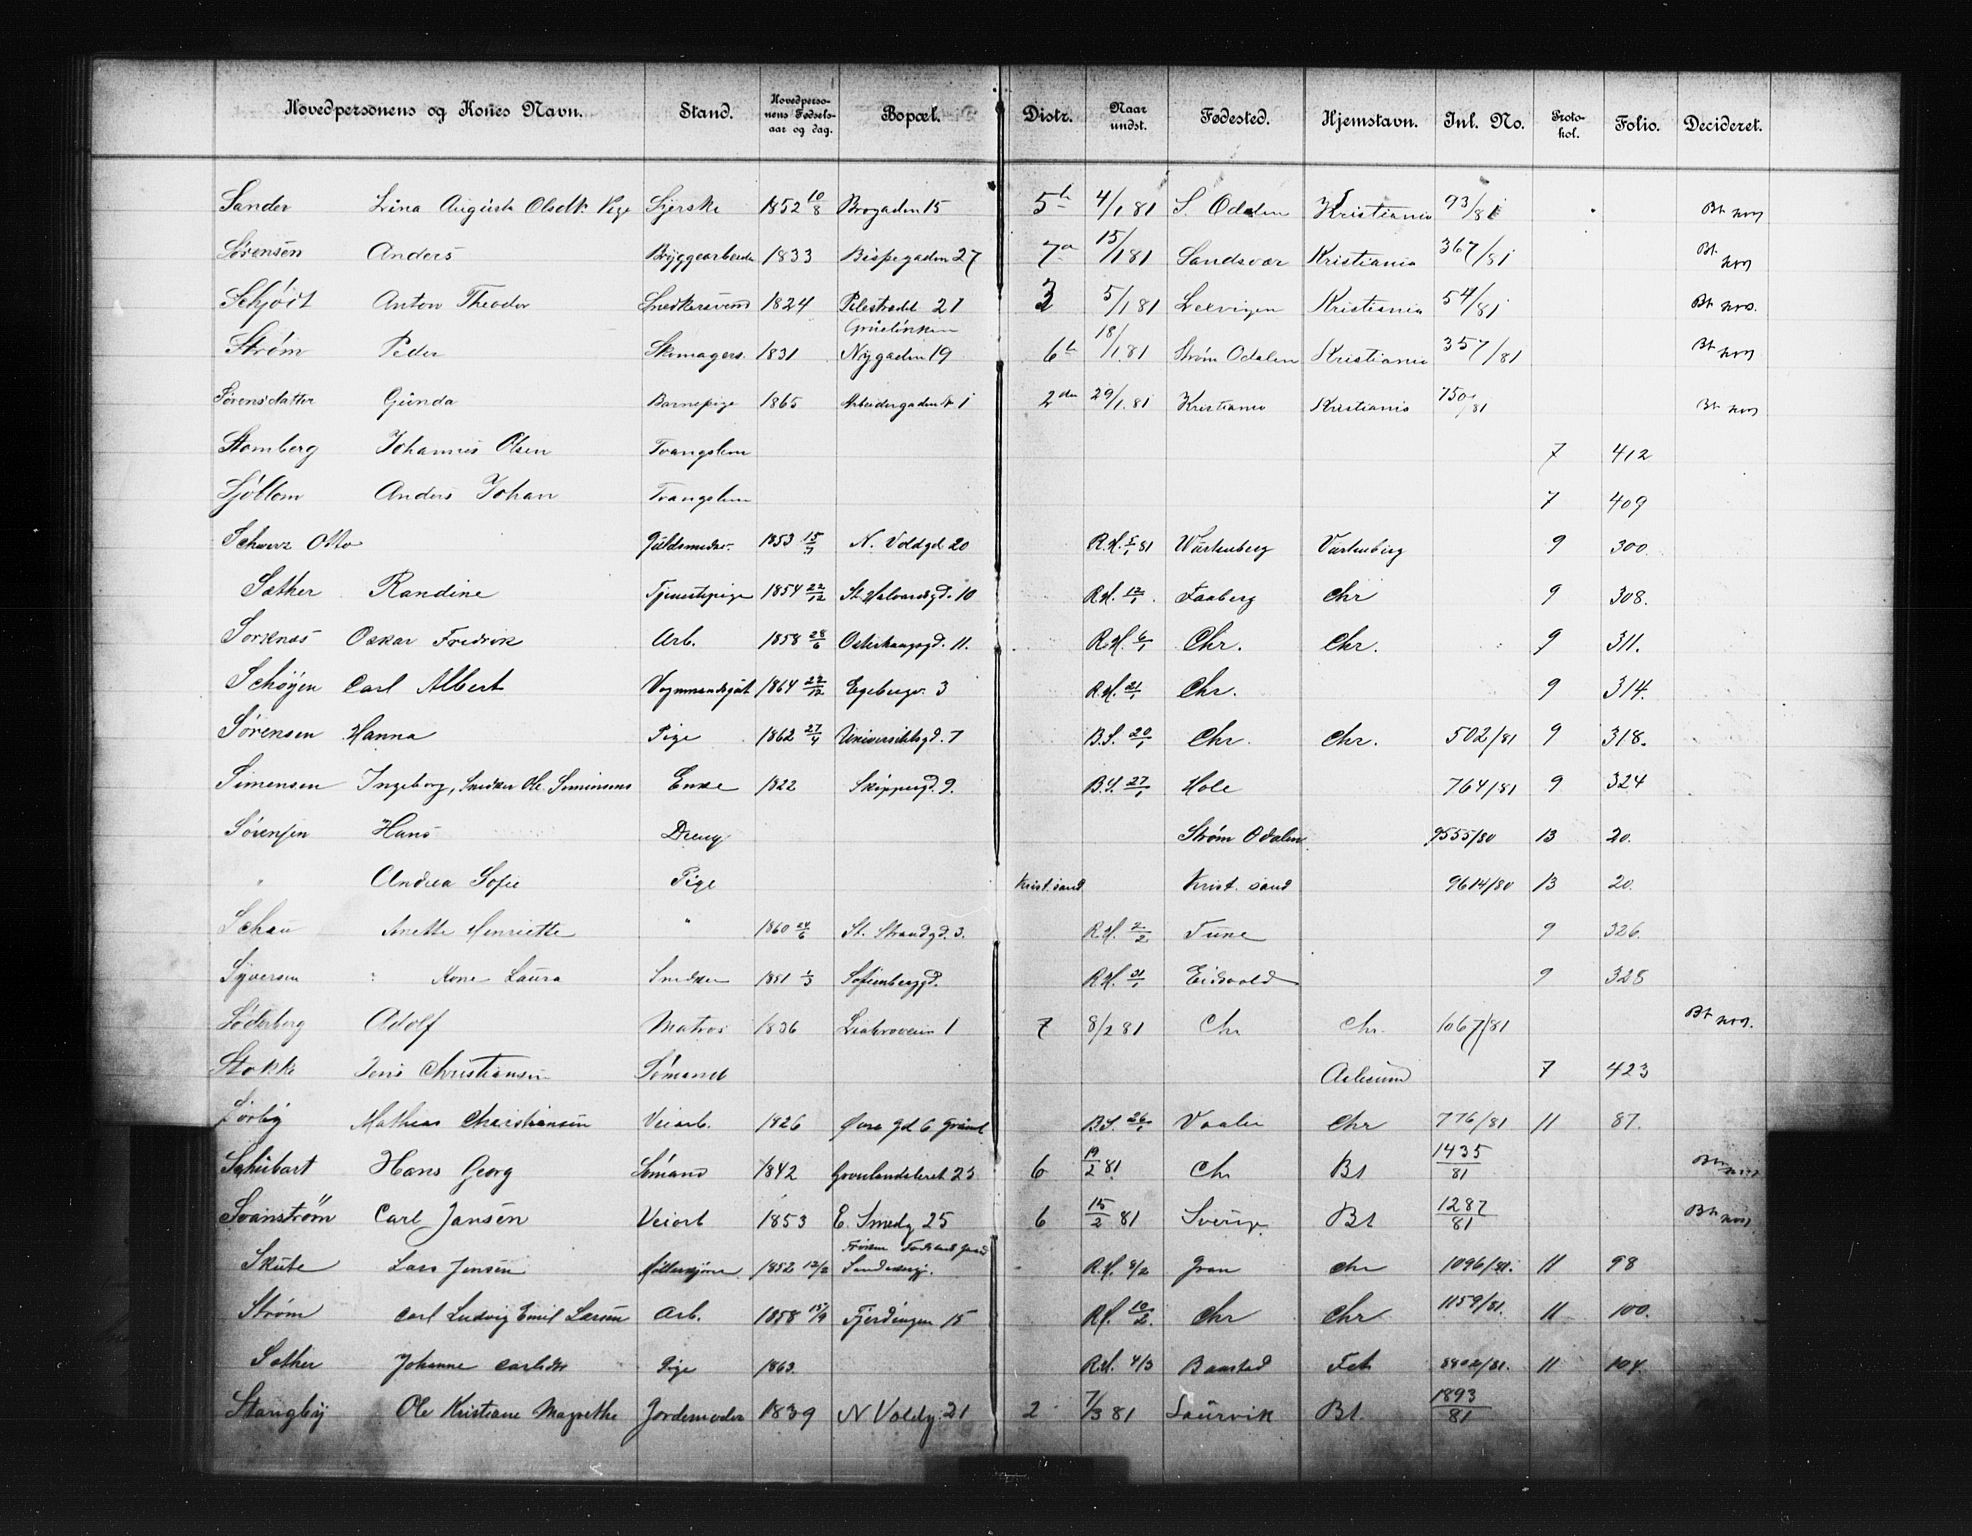 Hovedpersonens og Kones Navn. Stand. Hovedpersonens Fødselsaar og dag. Bopæl. Distr. Naar undst. Fødested. Hjemstavn. Inl. No. Protokol. Folio. Decideret.
Sander Lina Augusta Olsdtr. Pige Syerske 1852 10/8 Brogaden 15 5 b 4/1 81 S. Odalen Kristiania 93/81 Bt nog
Sørensen Anders Bryggearbeider 1833 Bispegaden 27 7 a 15/1 81 Sandsvær Kristiania 367/81 Bt nog
Schjödt Anton Theodor Snedkersvend 1824 Pilestrædet 21 3 5/1 81 Leervigen Kristiania 54/81 Bt nog.
Grüslökken
Strøm Peder Skomagers. 1831 Nygaden 19 6 b 18/1 81 Strøm Odalen Kristiania 357/81 Bt nog
Sørensdatter Gunda Barnepige 1865 Arbeidergaden 1 2den 29/1.81 Kristiania Kristiania 750/81 Bt nog
Stomberg Johannes Olsen Tvangslem 7 412
Sjöblom Anders Johan Tvangslem 7 409
Schwerz Otto Guldsmedsv. 1853 N. Voldgd. 20 R.H. 5/1 81 Würtenberg Vürtenberg 9 300
Sæther Randine Tjenestepige 1854 22/12 St. Halvardsgd. 10 R.H. 12/1. Faaberg Chr 9 308.
Sorknæs Oskar Fredrik Arb. 1858 28/6 Osterhaugsgd. 11. R.H. 6/1 Chr. Chr. 9 311.
Schøyen Carl Albert Vognmandsgut 1864 22/12 Egebergv. 3 R.H. 21/1 Chr. 9 314.
Sørensen Hanna Pige 1862 27/4 Universitetsgd. 7 B.S. 20/1 Chr. Chr. 502/81 9 318.
Simensen Ingeborg, Snedker Ole Simensens Enke 1822 Skippergd. 9. B.S. 27/1 Hole 764/81 9 324
Sørensen Hans Dreng Strøm Odalen 9555/80 13 20.
" Andrea Sofie Pige Krist.sand Krist. sand 9614/80 13 20.
Schau Anette Henriette " 1860 24/6 St. Strandgd. 3. R.H. 2/2 Tune 9 326
Syversen : Kone Laura Snedker 1851 1/3 Sofienberggd. R.H. 31/1 Eidsvold 9 328
Söderberg Adolf Matros 1836 Liabroveien 1 7 8/2 81 Chr Chr. 1067/81 Bt nog.
Stokke Jens Christiansen Sömand Aalesund 7 423
Sørby Mathias Christiansen Veiarb. 1826 Øvre gd 6 Grünl. B.S. 26/1 Vaaler Chr 776/81 11 87.
Schübart Hans Georg Sömand 1842 Grønlandsleret 23 6 19/2 81 Chr Bt 1435/81 Bt nog
Svanström Carl Jansen Veiarb 1853 E. Smedg 25 6 15/2 81 Sverige Bt 1287/81 Bt nog
Skute Lars Jensen 1852 12/2 R.H. 8/2 Gran Chr 1096/81. 11 98
Strøm Carl Ludvig Emil Larsen Arb. 1858 15/9 Fjerdingen 15 R.H. 10/2. Chr Chr 1159/81. 11 100.
Sæther Johanne Carlsdtr Pige 1863. R.H. 4/3 Baastad Fet 11 104.
Stangeby Ole Kristiane Magrethe Jordemoder 1839 N Voldg. 21 2 7/3 81 Laurvik Bt. 1893/81